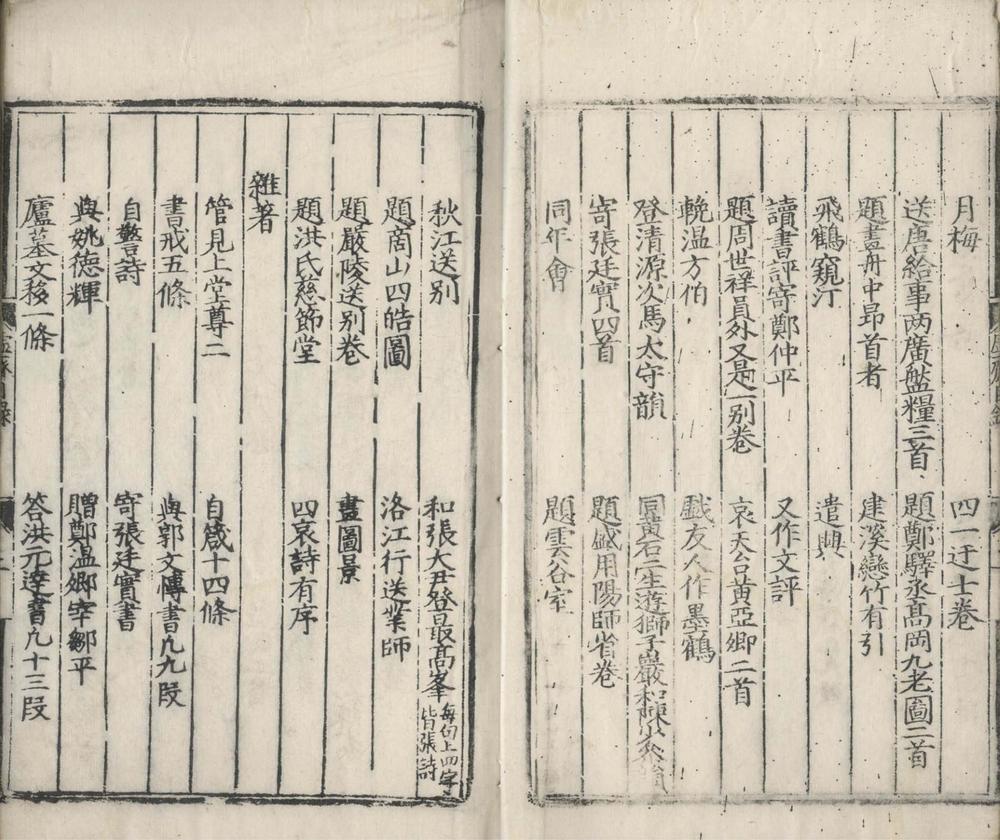 月梅 四一迂士卷
送唐給事两廣盤糧三首 題鄭驛丞髙岡九老圖二首
題畫舟中昻首者 建溪戀竹有引
飛鶴窺汀 遣興
讀書評寄鄭仲平 又作文評
題周世祥員外又是一别卷 哀天台黃亞卿二首
輓温方伯 戲友人作墨鶴
登清源次馬太守韻 同黄石二生遊獅子巖和陳
寄張廷實四首 題鹹用陽師省卷
同年會 題雲谷室
秋江送别 和張大尹登最髙峯 每句上四字皆張詩
題商山四皓圖 洛江行送業師
題嚴陵送别卷 畫圖景
題洪氏慈節堂 四哀詩有序
雜著
管見上堂尊二 自箴十四條
書戒五條 與郭文博書凢九段
自警詩 寄張廷實書
與姚德輝 贈鄭温卿宰鄒平
廬墓文移一條 答洪元達書凢十三段